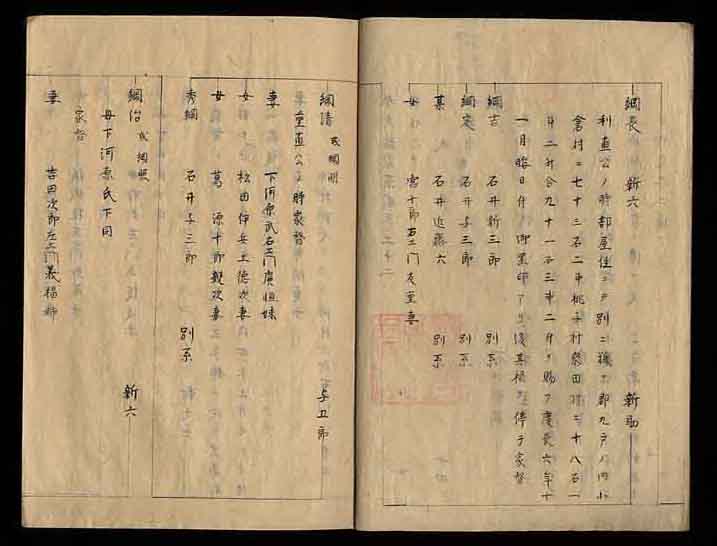 綱長 新六 新助
利直公ノ時部屋住ニテ別ニ稗貫郡九戸ノ内小
倉村ニ七十三石二斗桃子村柴田村ニ十八石一
斗二升合九十一石三斗二升ヲ賜フ慶長六年十
一月晦日付御黒印アリ後其禄ヲ停テ家督
綱吉 石井新三郎 別系
綱定 石井与三郎 別系
某 石井近藤六 別系
女 宮十郎右エ門友重妻
綱清 或綱明 与五郎
重直公ノ時家督
妻 下河原武右エ門廣恒妹
女 松田伊兵工徳次妻
女 葛源十郎親次妻
秀綱 石井与三郎 別系
綱治 或綱照 新六
母下河原氏下同
家督
妻 吉田次郎左エ門義福姉